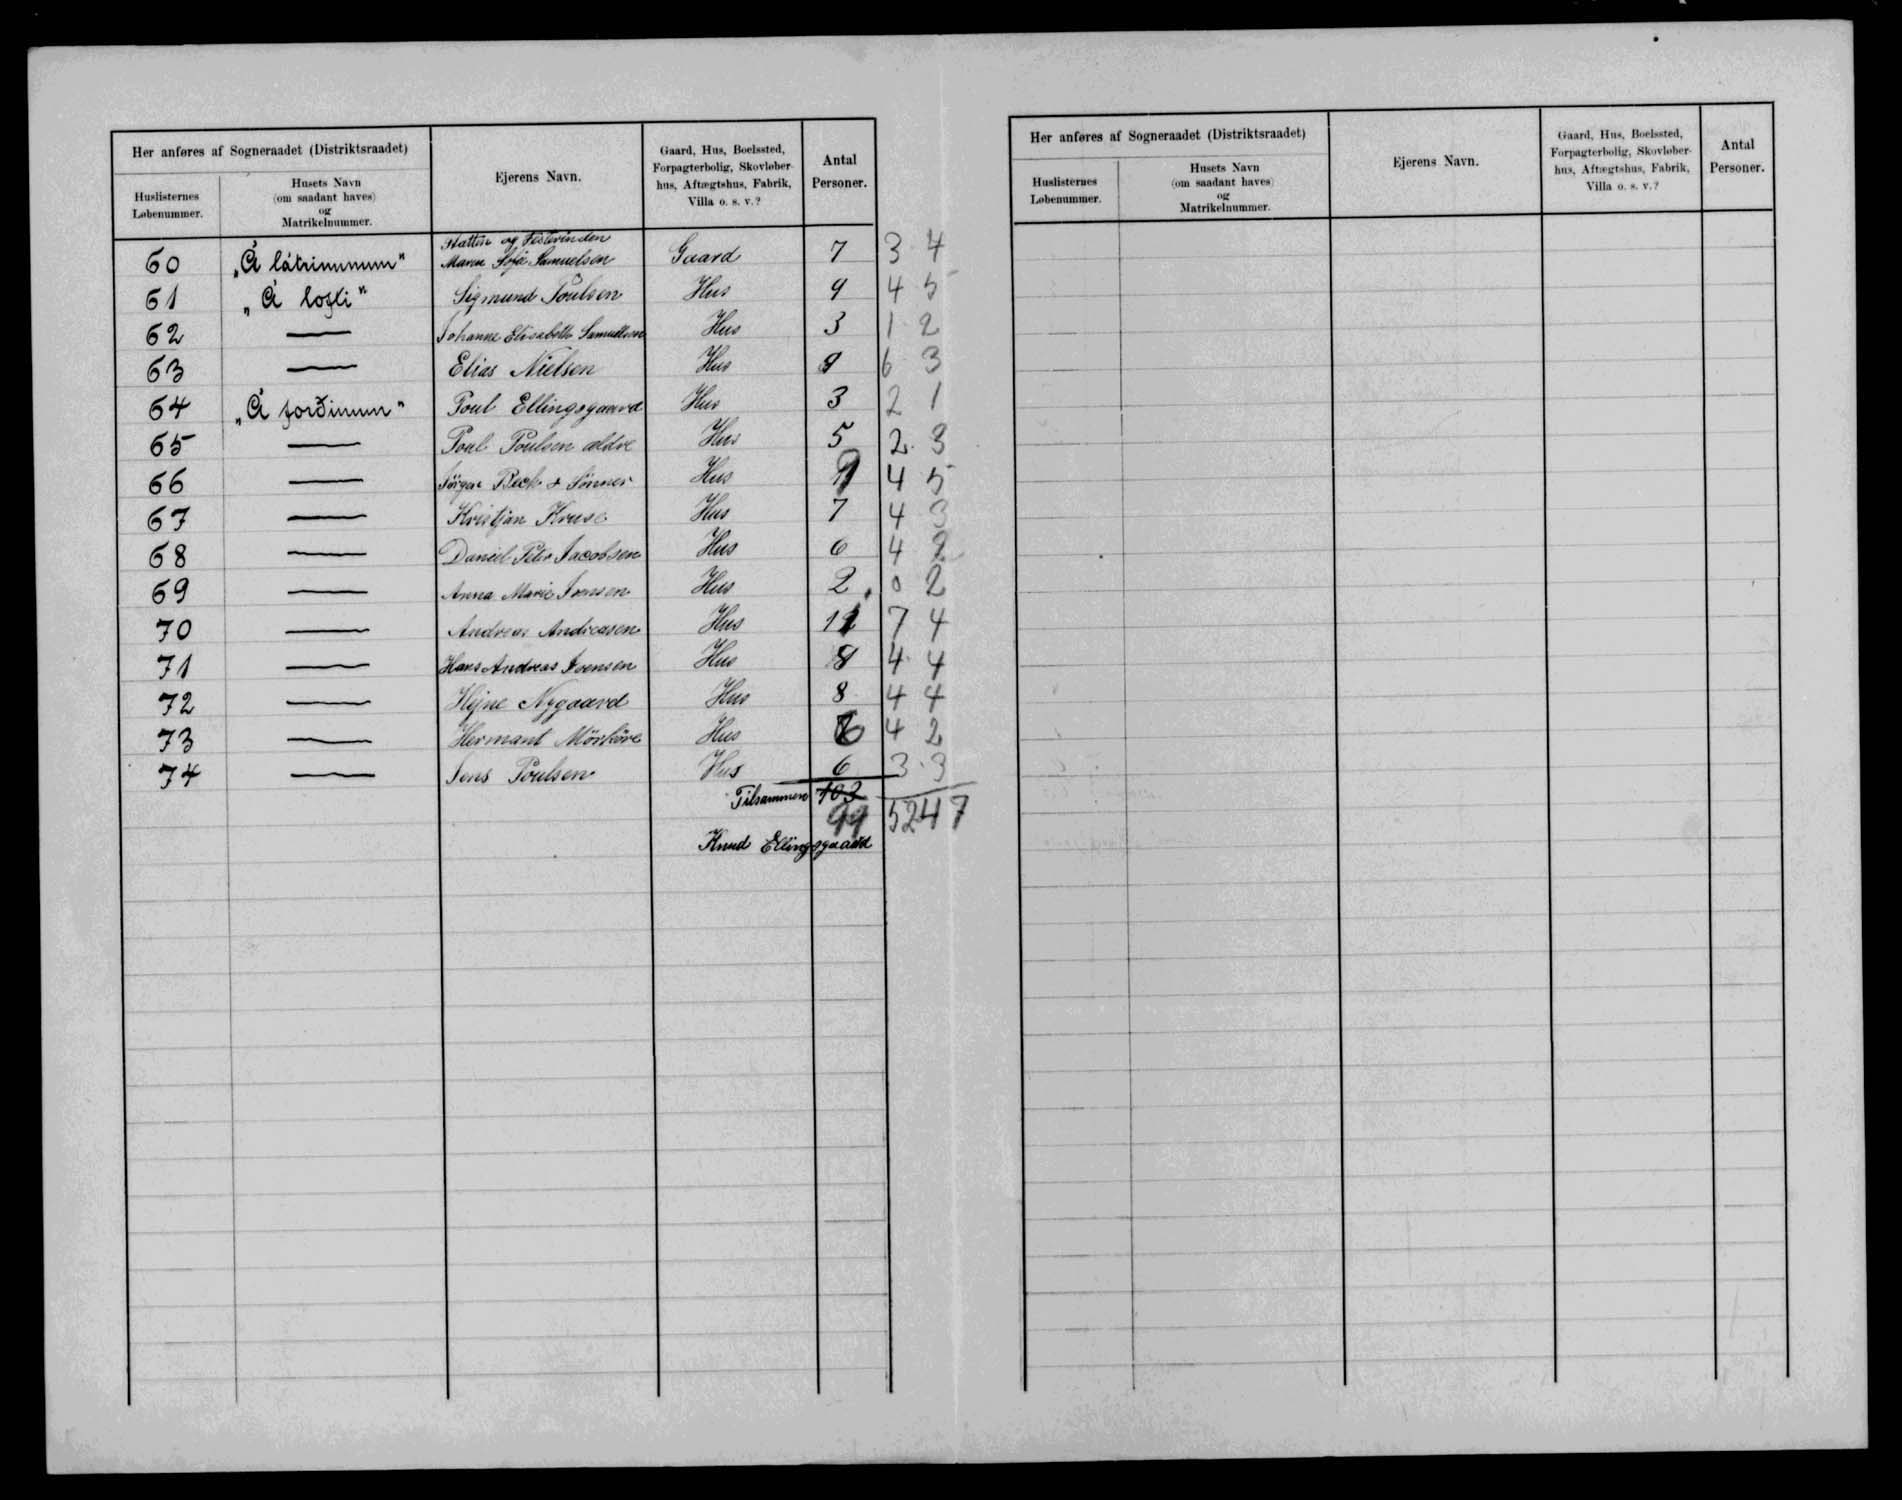 Her anføres af Sogneraadet (Distriktsraadet)
Huslisternes Løbenummer.
Husets Navn (om saadant haves) og Matrikelnummer.
Ejerens Navn.
Gaard, Hus, Boelssted, Forpagterbolig, Skovløberhus, Aftægtshus, Fabrik, Villa o. s. v.?
Antal Personer.
Staten og Festerinden
60 „Á látrinumum" Maren Sofie Samuelsen Gaard 7 3 4
61 „Á lofti" Sigmund Poulsen Hus 9 4 5
62 — Johanne Elisabeth Samuelsen Hus 3 1 2
63 — Elias Nielsen Hus 9 6 3
64 „Á forðinum" Poul Ellingsgaard Hus 3 2 1
65 — Poul Poulsen ældre Hus 5 2 3
66 — Jörgen Beck & Sönner Hus 9 4 5
67 — Kristjan Kruse Hus 7 4 3
68 — Daniel Peter Jacobsen Hus 6 4 2
69 — Anna Marie Joensen Hus 2 0 2
70 — Andreas Andreasen Hus 11 7 4
71 — Hans Andreas Joensen Hus 8 4 4
72 — Hejne Nygaard Hus 8 4 4
73 — Hermant Mörköre Hus 6 4 2
74 — Jens Poulsen Hus 6 3 3
Tilsammen 103
99 52 47
Knud Ellingsgaard
Her anføres af Sogneraadet (Distriktsraadet)
Huslisternes Løbenummer.
Husets Navn (om saadant haves) og Matrikelnummer.
Ejerens Navn.
Gaard, Hus, Boelssted, Forpagterbolig, Skovløberhus, Aftægtshus, Fabrik, Villa o. s. v.?
Antal Personer.